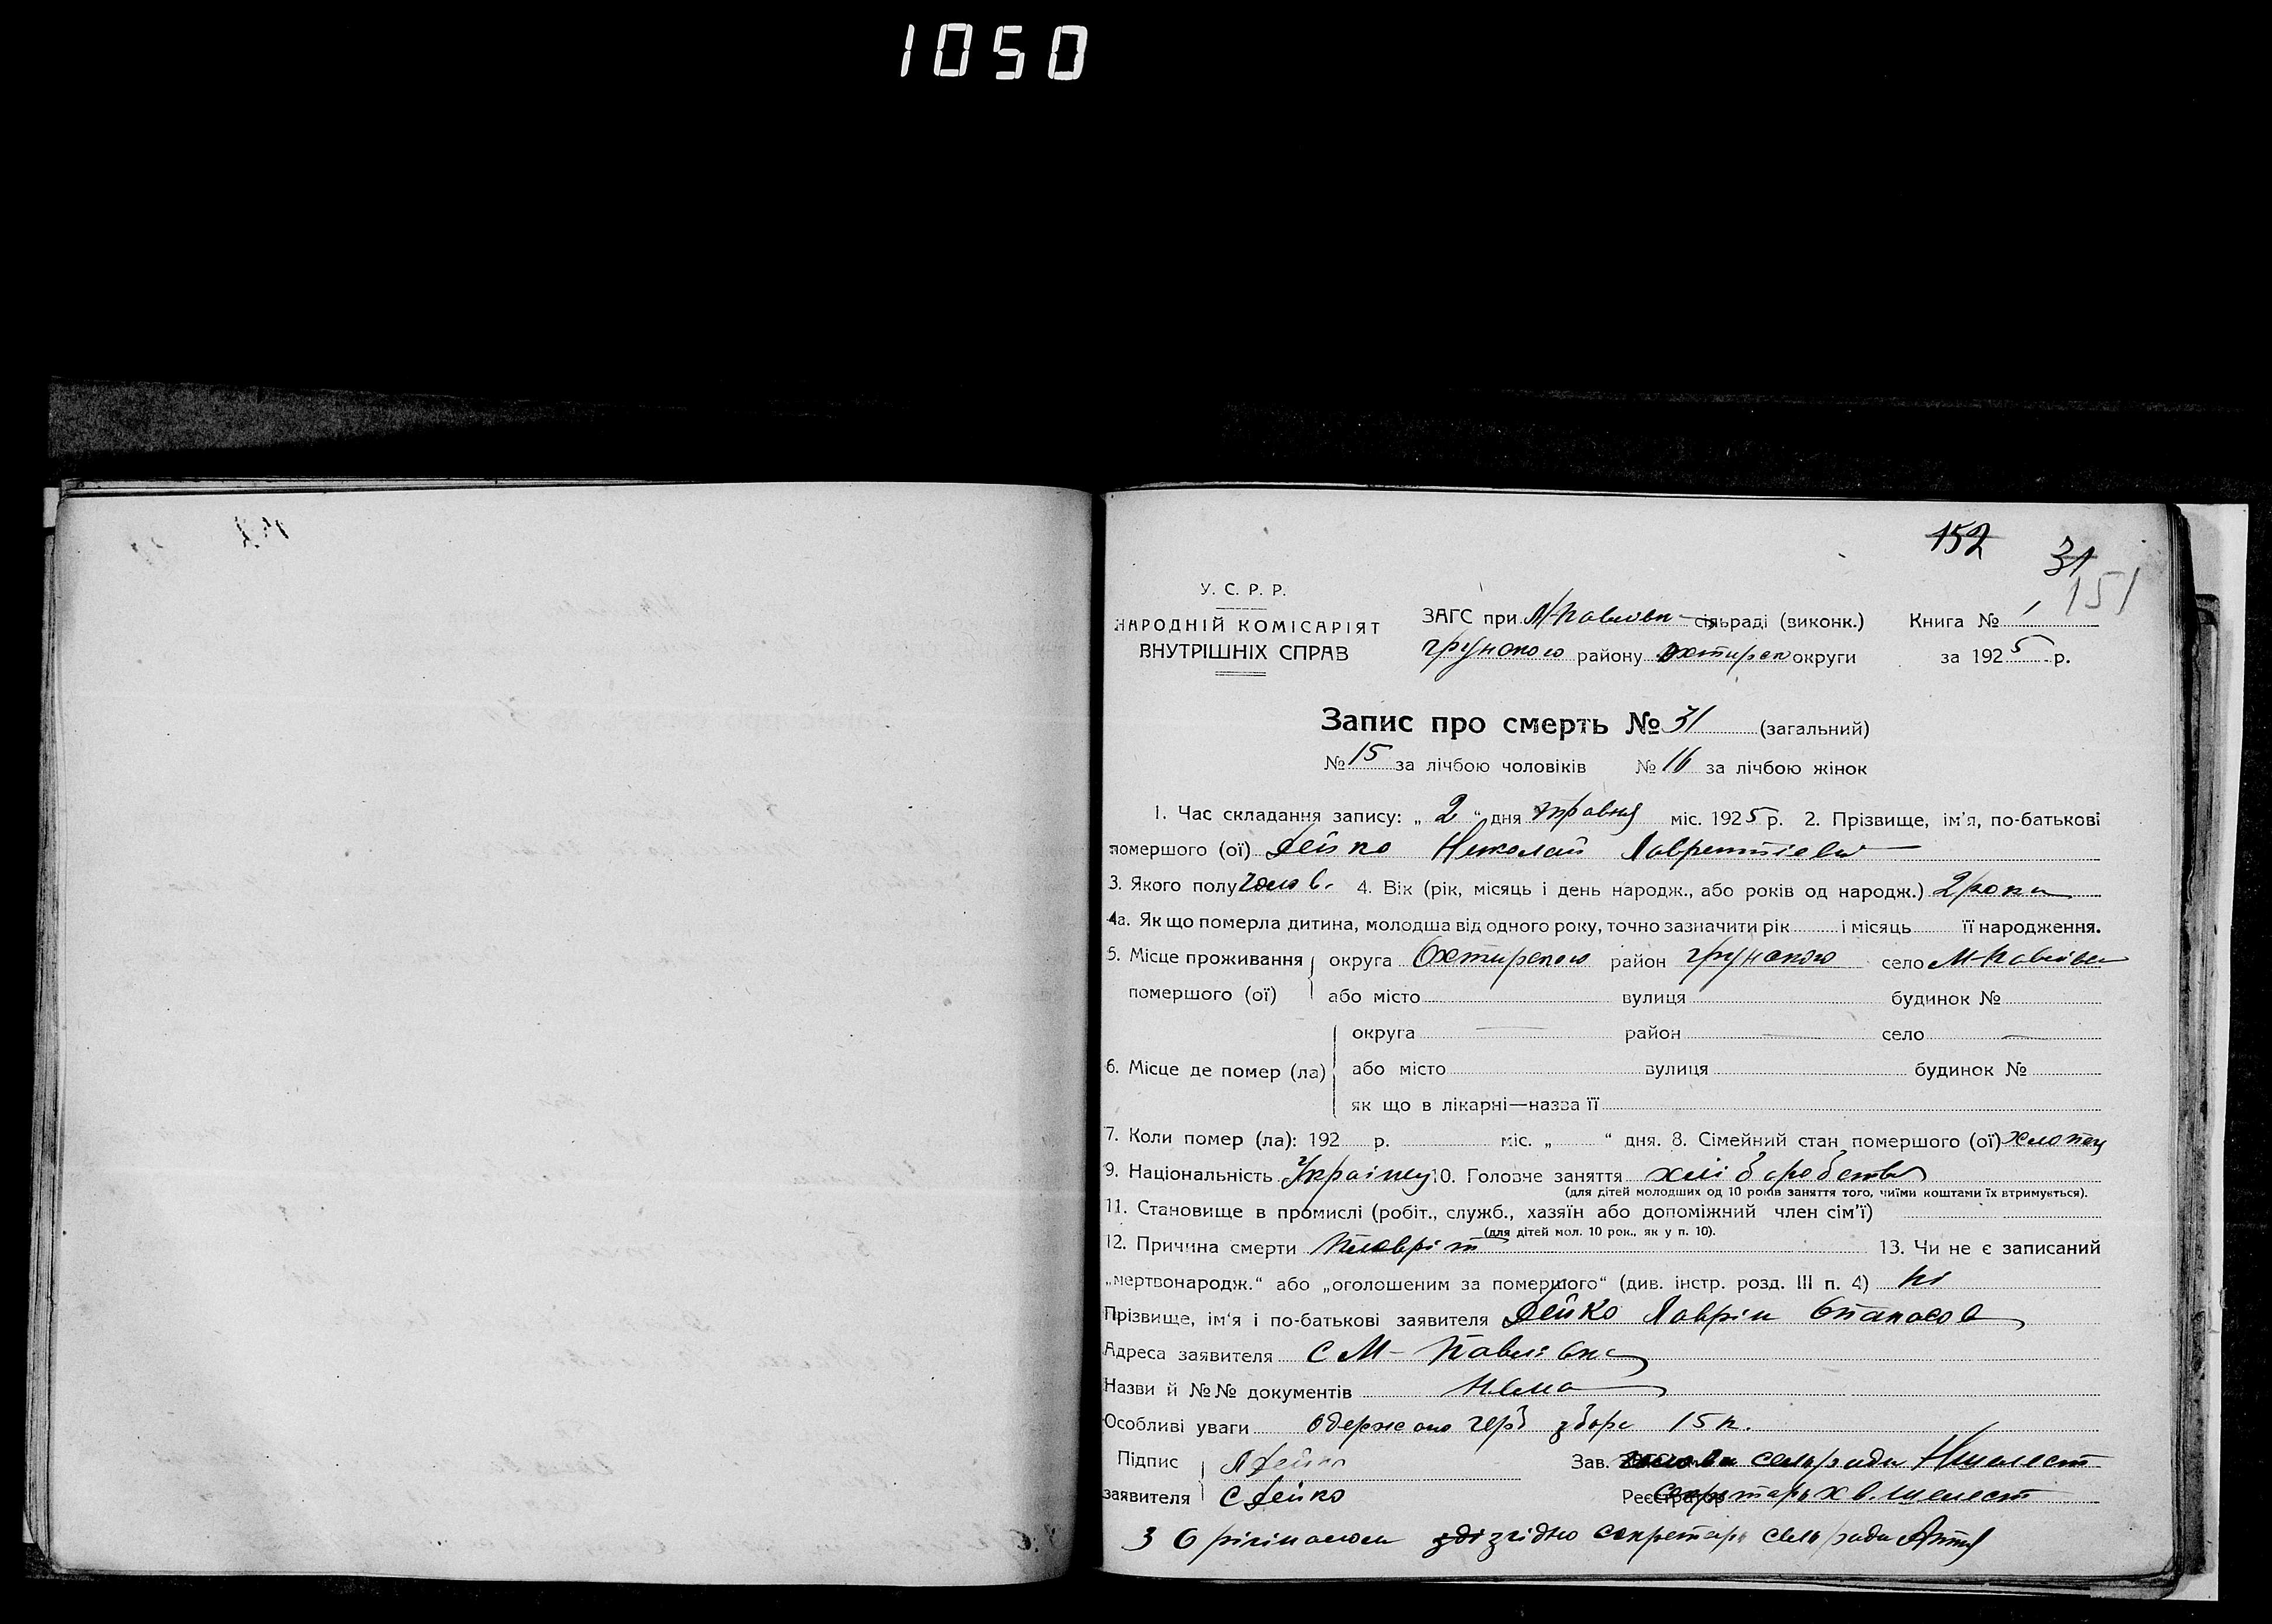 1050
152
31
151
У. С. Р. Р.
НАРОДНІЙ КОМІСАРІЯТ
ВНУТРІШНІХ СПРАВ
ЗАГС при М-Павлівк сільраді (виконк.) Книга № 1
Грунского району Охтирск округи за 1925 р.
Запис про смерть № 31 (загальний)
№ 15 за лічбою чоловіків № 16 за лічбою жінок
1. Час складання запису: „ 2 “ дня травня міс. 1925 р. 2. Прізвище, ім'я, по-батькові
помершого (ої) Дейко Николай Лаврентієв
3. Якого полу чолов. 4. Вік (рік, місяць і день народж., або років од народж.) 2 роки
4а. Як що померла дитина, молодша від одного року, точно зазначити рік і місяць її народження.
5. Місце проживання округа Охтирского район Грунского село М-Павлівка
помершого (ої) або місто вулиця будинок №
округа — район — село —
6. Місце де помер (ла) або місто вулиця будинок №
як що в лікарні—назва її
7. Коли помер (ла): 192 р. міс. „ “ дня. 8. Сімейний стан помершого (ої) хлопец
9. Національність Українец 10. Головне заняття хліборобство
(для дітей молодших од 10 років заняття того, чиїми коштами їх втримується).
11. Становище в промислі (робіт., служб., хазяїн або допоміжний член сім'ї)
(для дітей мол. 10 рок., як у п. 10).
12. Причина смерти Плеврит 13. Чи не є записаний
„мертвонародж.“ або „оголошеним за помершого“ (див. інстр. розд. III п. 4) ні
Прізвище, ім'я і по-батькові заявителя Дейко Лаврін Опанасов
Адреса заявителя С М-Павлівка
Назви й №№ документів Нема
Особливі уваги Одержано герб збору 15 к.
Підпис Л Дейко Зав. сельради Н Шелест
заявителя С Дейко Реєстратор Секретарь Х в. Шелест
З Орігіналом згідно Секретарь Сельради